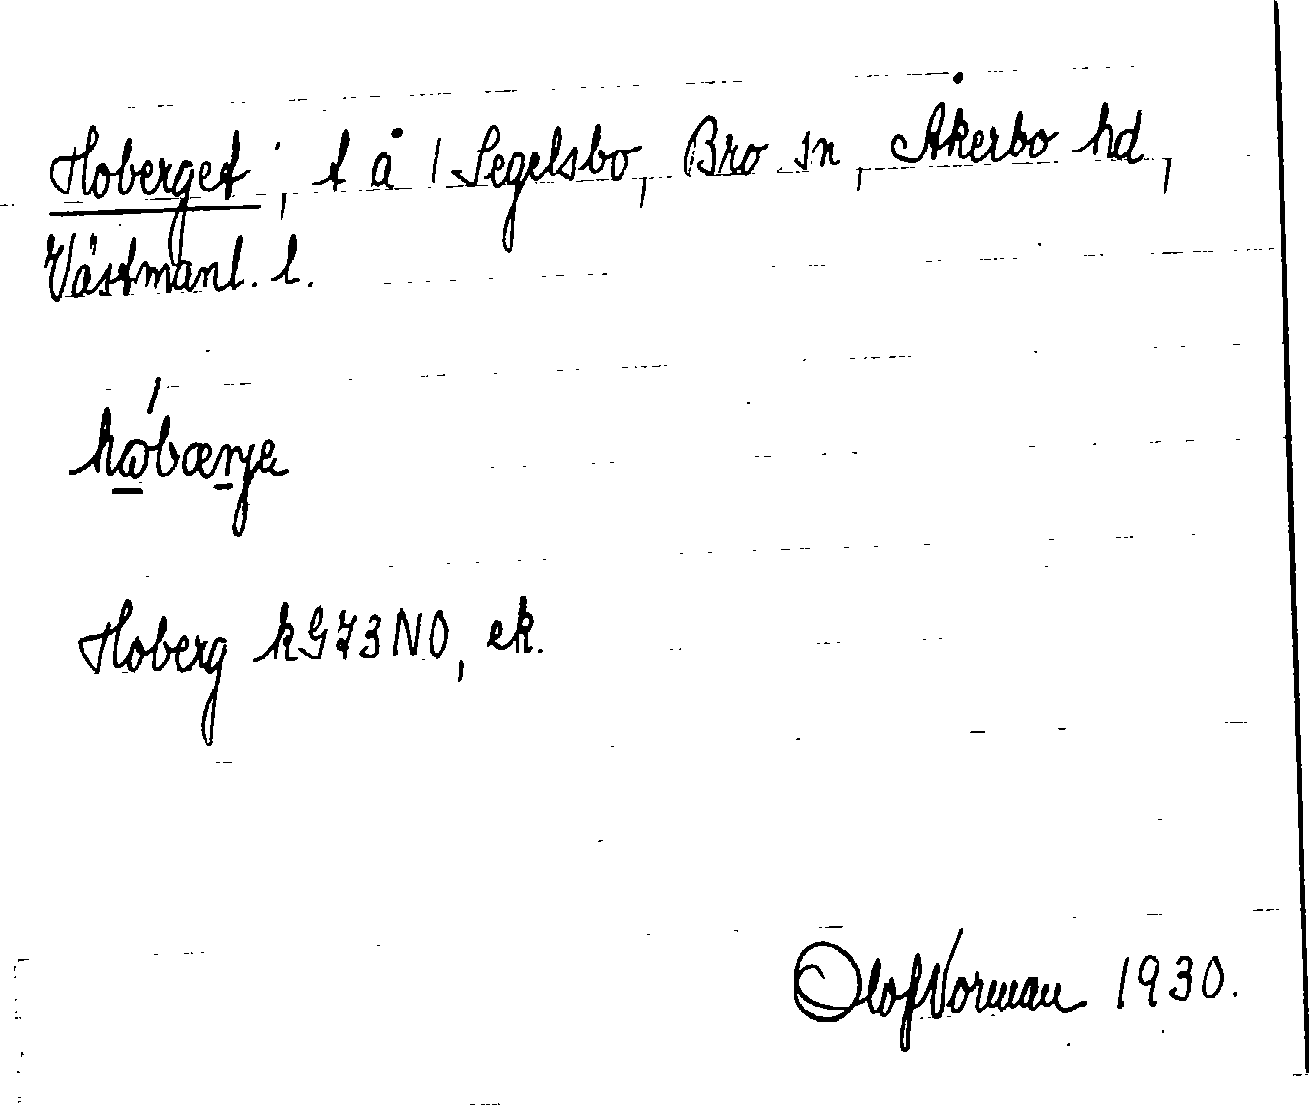 Hoberget, t å 1 Segelsbo, Bro sn, Åkerbo hd,
Västmanl. l.
hobærje
Hoberg kG73NO, ek.
Olof Norman 1930.